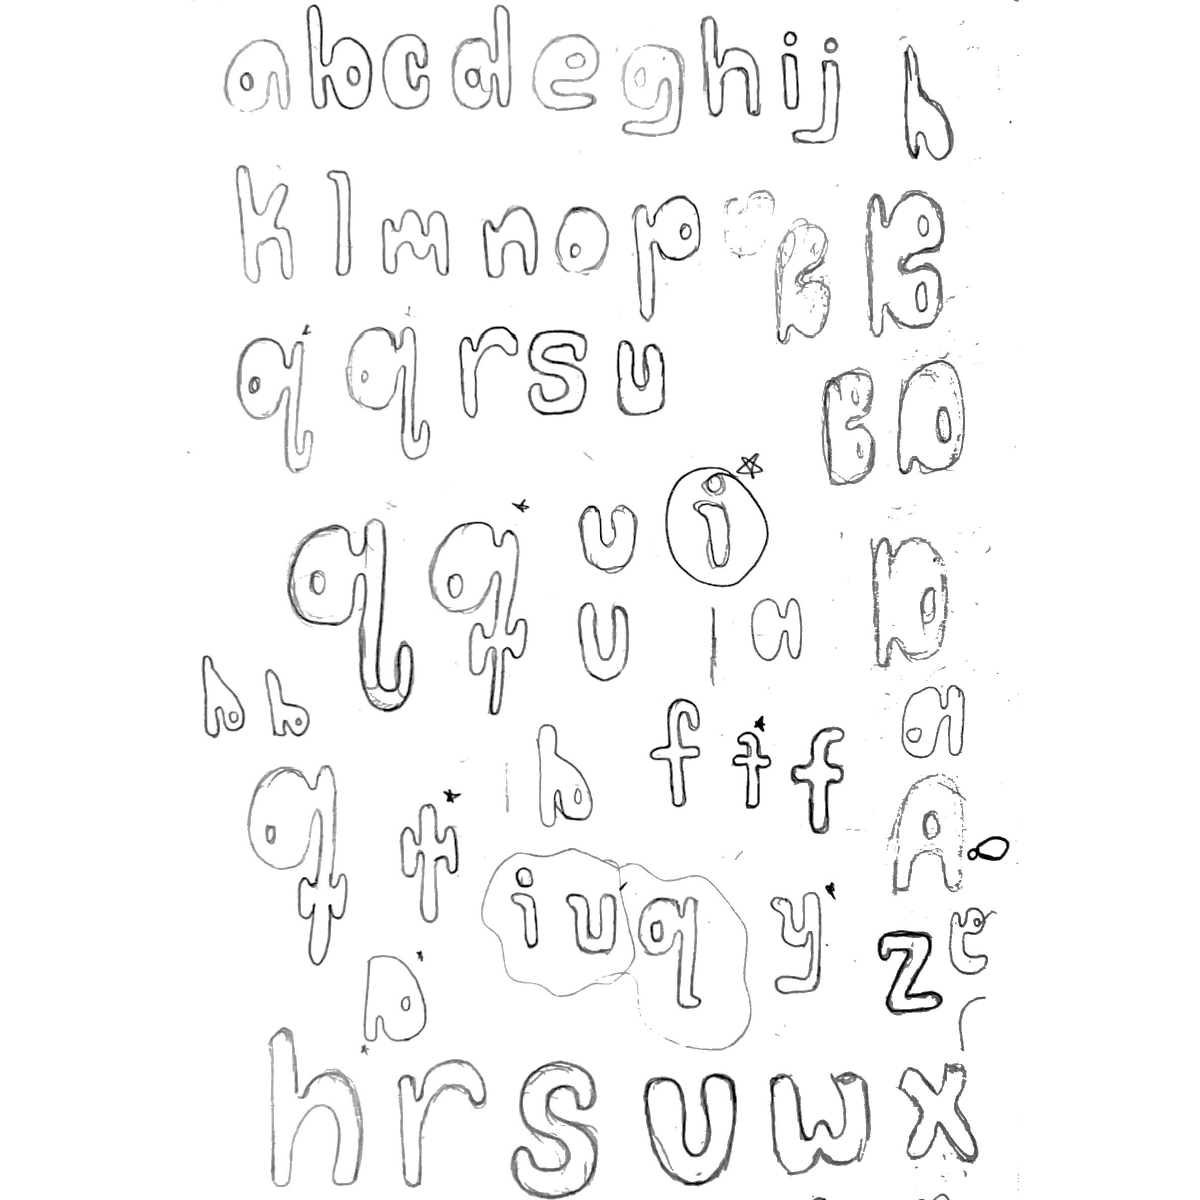 abcdeghij b
klmnop B B
qqrsu B D
q q u i
u D
b b a
q b f f f A
i u q y z
D
hrsuwx